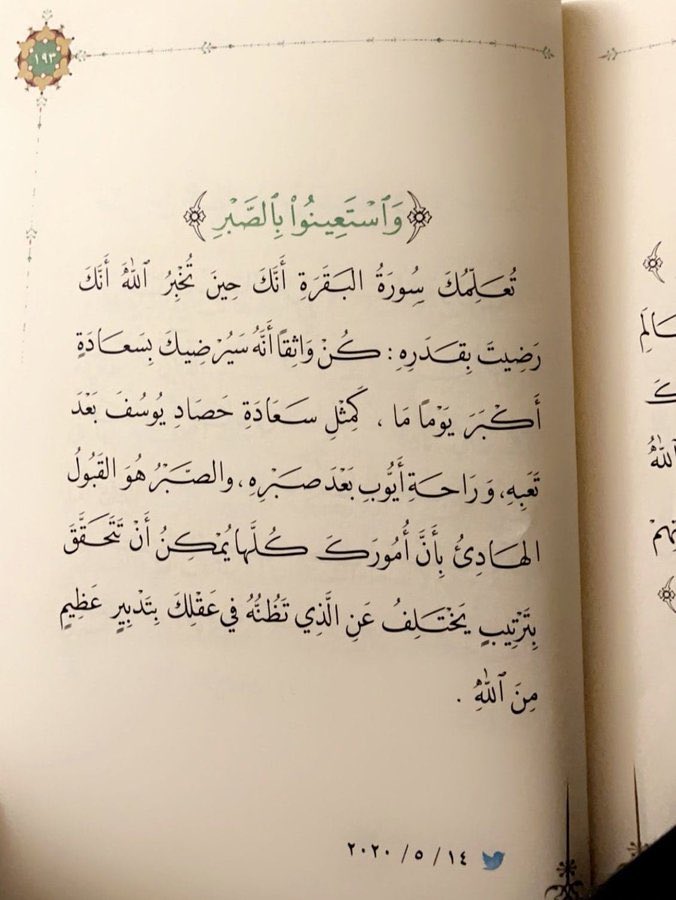 ١٩٣
﴿وَٱسْتَعِينُوا۟ بِٱلصَّبْرِ﴾
تُعَلِّمُكَ سُورَةُ البَقَرَةِ أَنَّكَ حِينَ تُخْبِرُ ٱللَّهَ أَنَّكَ
رَضِيتَ بِقَدَرِهِ: كُنْ وَاثِقاً أَنَّهُ سَيُرْضِيكَ بِسَعَادَةٍ
أَكْبَرَ يَوْماً مَا ، كَمِثْلِ سَعَادَةِ حَصَادِ يُوسُفَ بَعْدَ
تَعَبِهِ، وَرَاحَةِ أَيُّوبِ بَعْدَ صَبْرِهِ، والصَّبْرُ هُوَ القَبُولُ
الهَادِئُ بِأَنَّ أُمُورَكَ كُلَّها يُمْكِنُ أَنْ تَتَحَقَّقَ
بِتَرْتِيبٍ يَخْتَلِفُ عَنِ الَّذِي تَظُنُّهُ في عَقْلِكَ بِتَدْبِيرٍ عَظِيمٍ
مِنَ ٱللَّهِ .
١٤ / ٥ / ٢٠٢٠